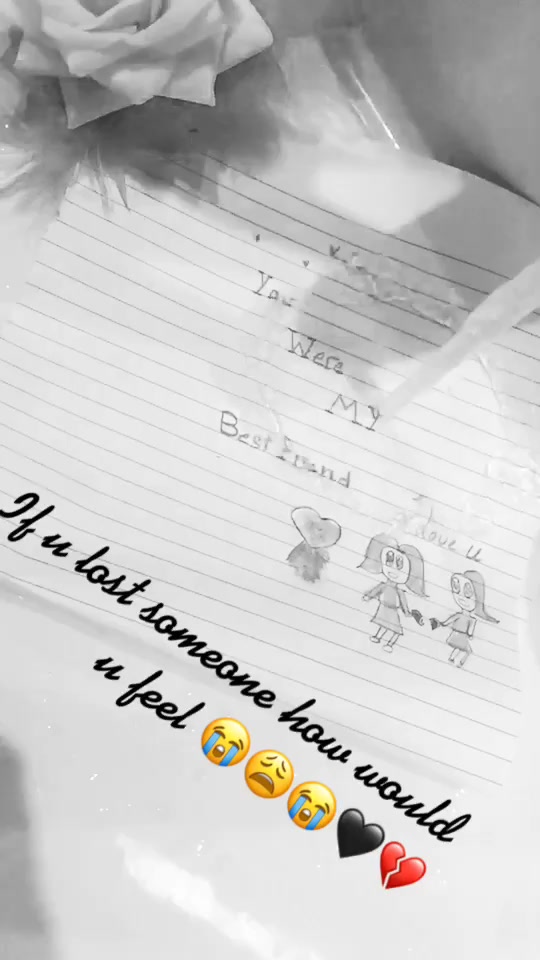 You
Were
MY
Best Friend
I love u
If u lost someone how would
u feel 😭😩😭🖤💔